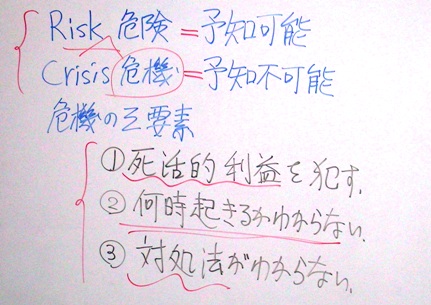 Risk 危険=予知可能
Crisis 危機=予知不可能
危機の三要素
①死活的利益を犯す.
②何時起きるかわからない.
③対処法がわからない.